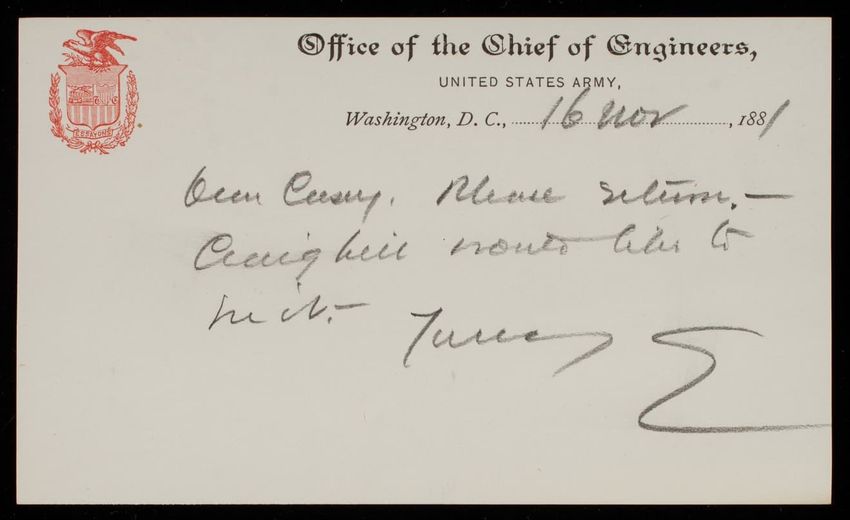 Office of the Chief of Engineers,
UNITED STATES ARMY,
Washington, D. C., 16 Nov, 1881
ESSAYONS
Dear Casey. Please return.—
Craighill wants like to
see it.—
Truly